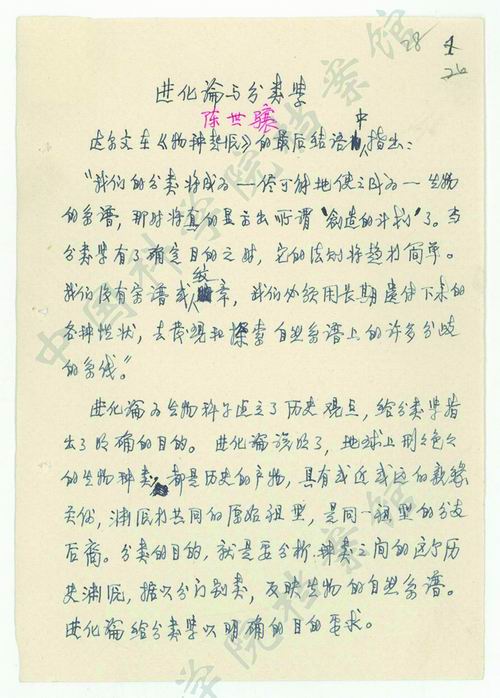 28 4
26
进化论与分类学
陈世骧
达尔文在《物种起源》的最后结语中指出:
"我们的分类将成为——尽可能地使之成为——生物
的系谱,那时将真的显示出所谓"创造的计划"了。当
分类学有了确定目的之时,它的法则将趋于简单。
我们没有宗谱或纹章,我们必须用长期遗传下来的
各种性状,去发现和探索自然系谱上的许多分歧
的系线。"
进化论为生物科学建立了历史观点,给分类学指
出了明确的目的。进化论说明了,地球上形形色色
的生物种类,都是历史的产物,具有或近或远的亲缘
关系,渊源于共同的原始祖型,是同一祖型的分支
后裔。分类的目的,就是要分析种类之间的这个历
史渊源,据以分门别类,反映生物的自然系谱。
进化论给分类学以明确的目的要求。
中国科学院档案馆
学院档案馆